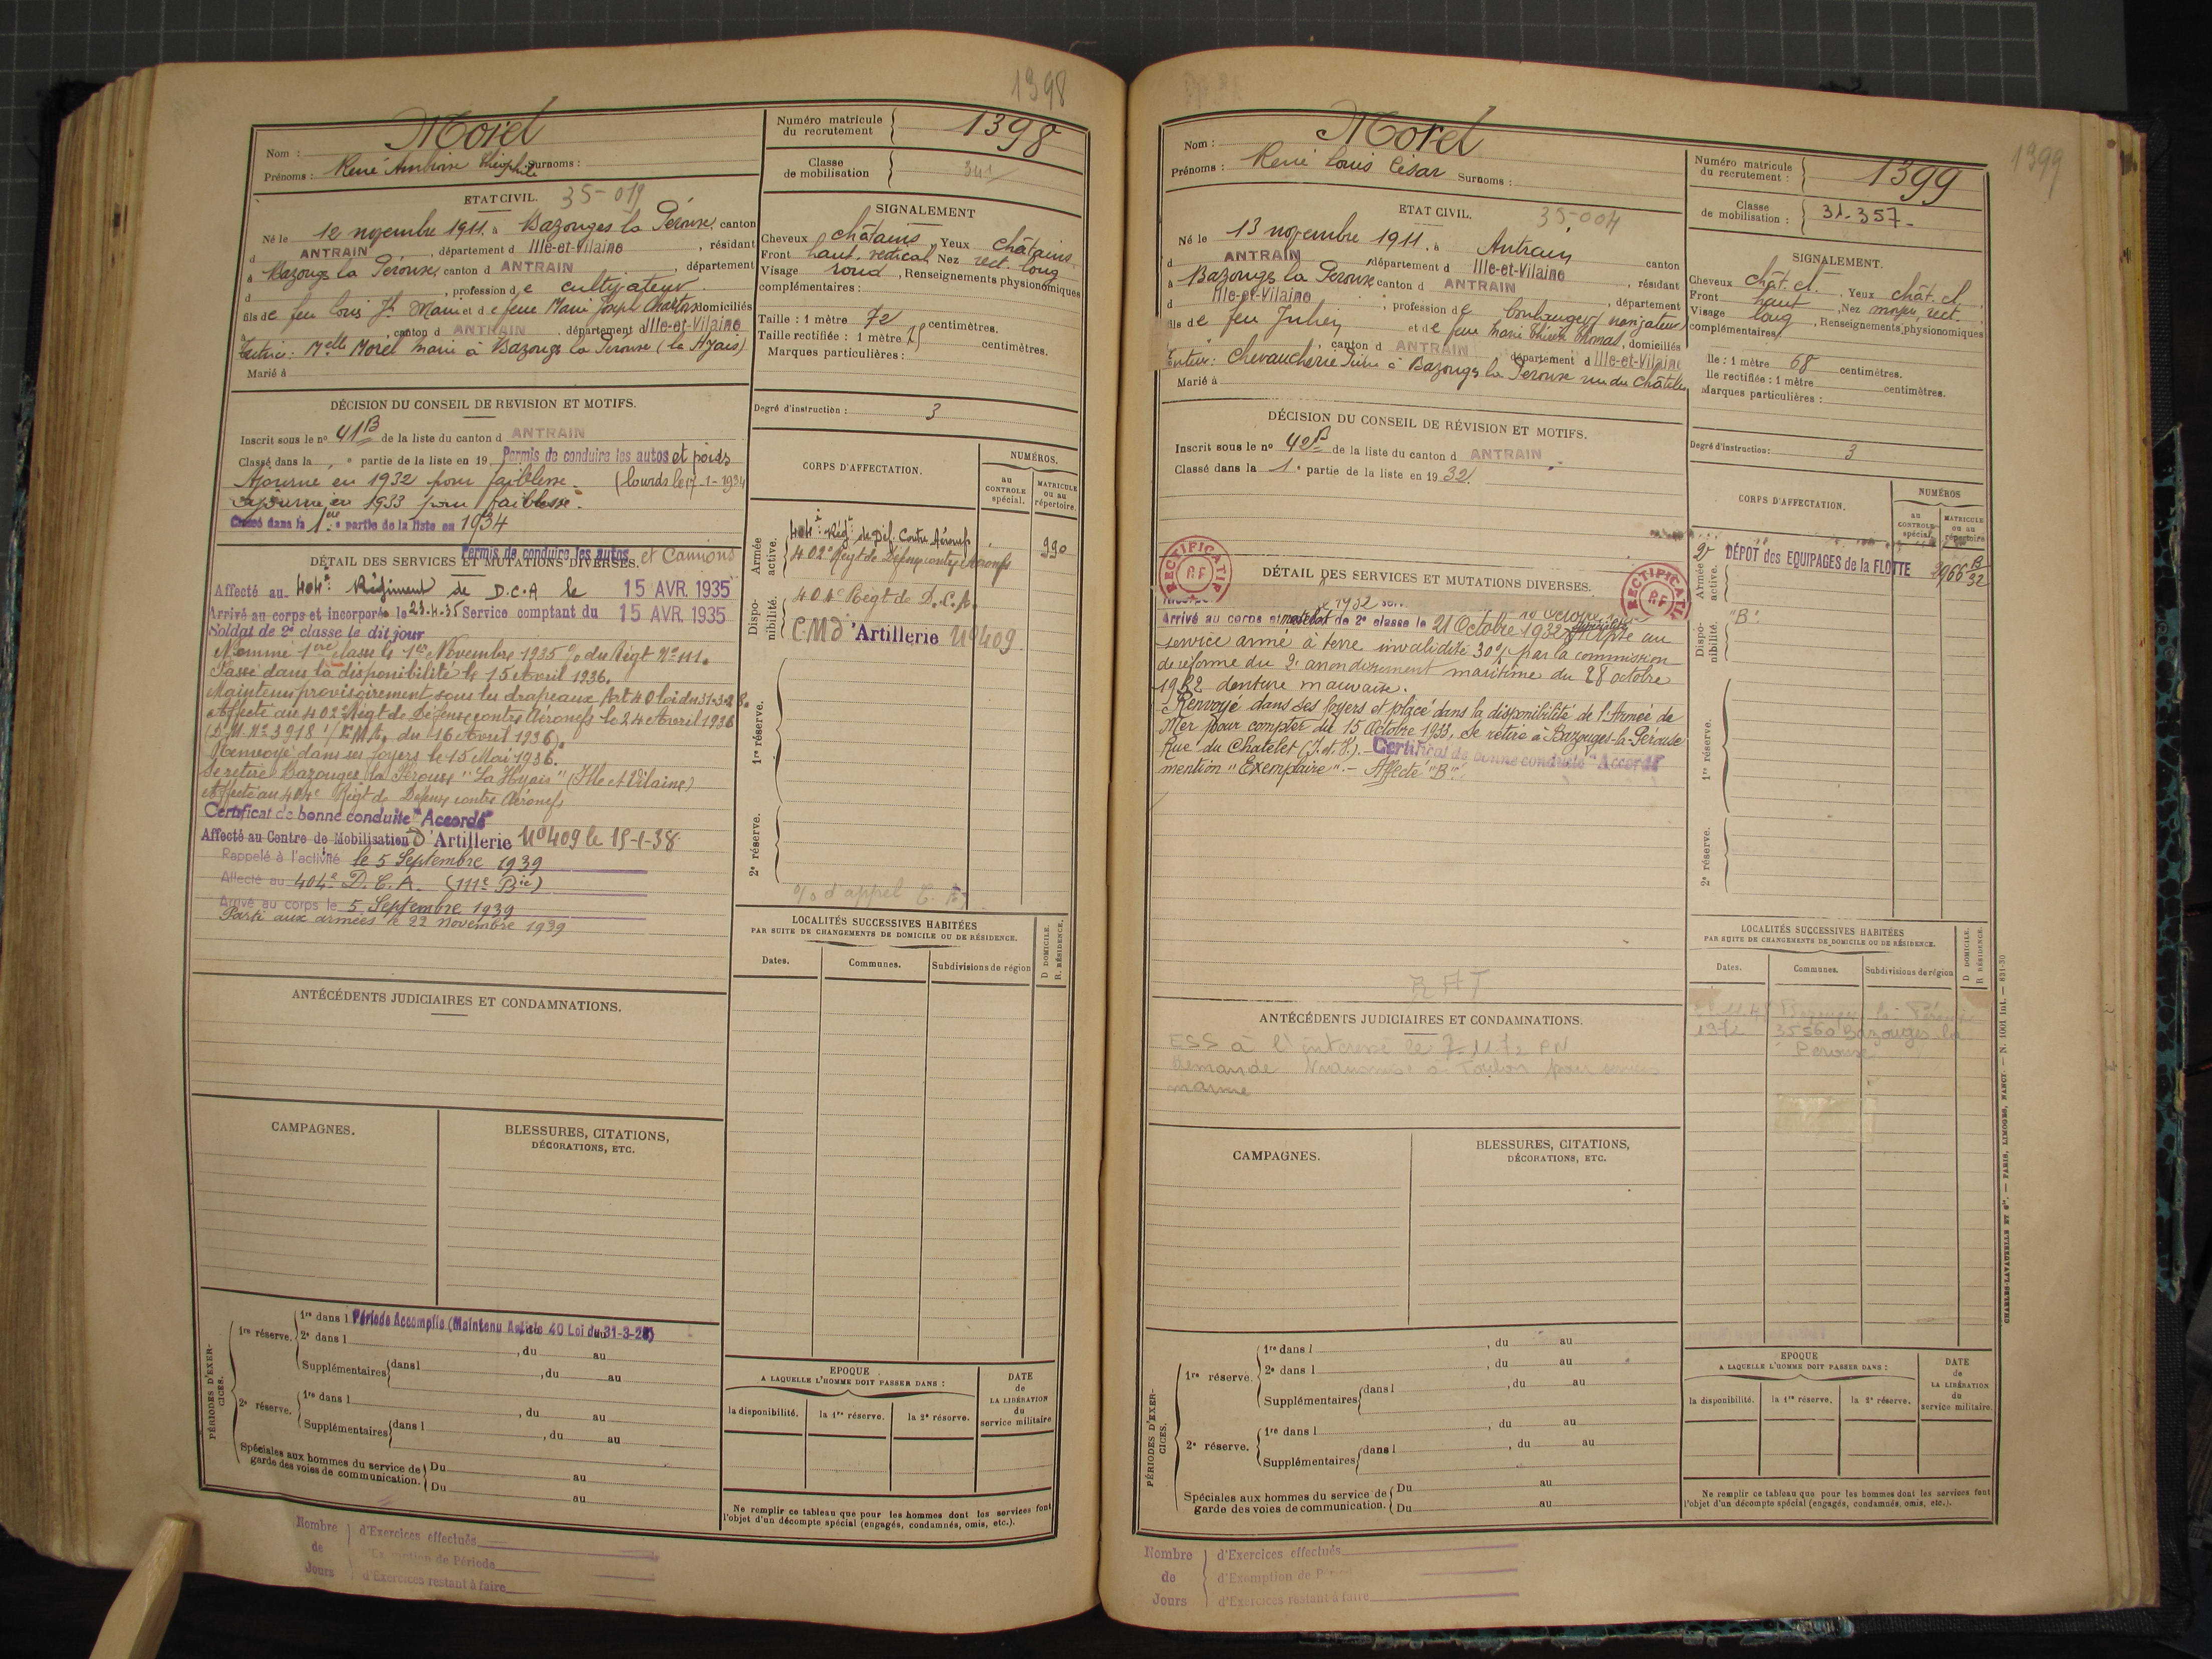 1398
Nom : Morel
Prénoms : René Ambroise Théophile Surnoms :
Numéro matricule du recrutement 1398
Classe de mobilisation 341
ETAT CIVIL. 35-019
Né le 12 novembre 1911. à Bazouges la Pérouse, canton
d ANTRAIN, département d Ille-et-Vilaine, résidant
à Bazouges la Pérouse, canton d ANTRAIN, département
d , profession de cultivateur
fils de feu Louis Jh Marie et de feue Marie Joseph domiciliés
à , canton d ANTRAIN, département d Ille-et-Vilaine
Tutrice : Melle Morel Marie à Bazouges la Pérouse (la Hyais)
Marié à
SIGNALEMENT
Cheveux châtains Yeux châtains
Front haut. vertical Nez rect. long
Visage rond, Renseignements physionomiques
complémentaires :
Taille : 1 mètre 72 centimètres.
Taille rectifiée : 1 mètre centimètres.
Marques particulières :
Degré d'instruction : 3
DÉCISION DU CONSEIL DE REVISION ET MOTIFS.
Inscrit sous le nº 41B de la liste du canton d ANTRAIN
Classé dans la e partie de la liste en 19 Permis de conduire les autos et poids
Ajourné en 1932 pour faiblesse. (lourds le 17-1-1934
Ajourné en 1933 pour faiblesse.
Classé dans la 1ère partie de la liste en 1934
DÉTAIL DES SERVICES ET MUTATIONS DIVERSES. Permis de conduire les autos et Camions
Affecté au 404e Régiment de D.C.A le 15 AVR. 1935
Arrivé au corps et incorporé le 23.4.35 Service comptant du 15 AVR. 1935
Soldat de 2e classe le dit jour
Nommé 1ère classe le 1er Novembre 1935 % du Régt Nº 111.
Passé dans la disponibilité le 15 Avril 1936.
Maintenu provisoirement sous les drapeaux Art 40 loi du 31-3-28.
Affecté au 402e Régt de Défense contre Aéronefs le 24 Avril 1936
(D.M. Nº 3918 1/E.M.A. du 16 Avril 1936).
Renvoyé dans ses foyers le 15 Mai 1936.
Se retire Bazouges la Pérouse "La Hyais" (Ille et Vilaine)
Affecté au 404e Régt de Défense contre Aéronefs
Certificat de bonne conduite "Accordé"
Affecté au Centre de Mobilisation d'Artillerie Nº409 le 15-1-38
Rappelé à l'activité le 5 Septembre 1939
Affecté au 404e D.C.A. (111e Bie)
Arrivé au corps le 5 Septembre 1939
Parti aux armées le 22 Novembre 1939
CORPS D'AFFECTATION.
NUMÉROS.
au CONTROLE spécial.
MATRICULE ou au répertoire.
Armée active.
404e Régt de Déf. Contre Aéronefs 990
402e Régt de Défense contre Aéronefs
Disponibilité.
404e Régt de D.C.A.
C.M d'Artillerie Nº409
1re réserve.
2e réserve.
% d'appel
LOCALITÉS SUCCESSIVES HABITÉES
PAR SUITE DE CHANGEMENTS DE DOMICILE OU DE RÉSIDENCE.
D DOMICILE.
R. RÉSIDENCE.
Dates. Communes. Subdivisions de région
ANTÉCÉDENTS JUDICIAIRES ET CONDAMNATIONS.
CAMPAGNES.
BLESSURES, CITATIONS,
DÉCORATIONS, ETC.
PÉRIODES D'EXERCICES.
1re réserve. 1re dans l Période Accomplie (Maintenu Article 40 Loi du 31-3-28)
2e dans l , du au
Supplémentaires dans l , du au
2e réserve. 1re dans l , du au
Supplémentaires dans l , du au
Spéciales aux hommes du service de garde des voies de communication. Du au
Du au
EPOQUE
A LAQUELLE L'HOMME DOIT PASSER DANS :
la disponibilité. la 1re réserve. la 2e réserve.
DATE de LA LIBÉRATION du service militaire
Ne remplir ce tableau que pour les hommes dont les services font
l'objet d'un décompte spécial (engagés, condamnés, omis, etc.).
Nombre de Jours
d'Exercices effectués
d'Exemption de Période
d'Exercices restant à faire
1399
Nom : Morel
Prénoms : René Louis César Surnoms :
Numéro matricule du recrutement : 1399
Classe de mobilisation : 31.357-
ETAT CIVIL. 35-004
Né le 13 novembre 1911. à Antrain canton
d ANTRAIN département d Ille-et-Vilaine, résidant
à Bazouges la Pérouse canton d ANTRAIN, département
d Ille-et-Vilaine, profession de boulanger navigateur
fils de feu Julien et de feue Marie Thérèse Thomas, domiciliés
, canton d ANTRAIN département d Ille-et-Vilaine
Tuteur : Chevaucherie à Bazouges la Pérouse rue du Châtelet
Marié à
SIGNALEMENT.
Cheveux chât. cl. Yeux chât. cl.
Front haut, Nez moyen, rect.
Visage long, Renseignements physionomiques
complémentaires
lle : 1 mètre 68 centimètres.
lle rectifiée : 1 mètre centimètres.
Marques particulières :
Degré d'instruction : 3
DÉCISION DU CONSEIL DE RÉVISION ET MOTIFS.
Inscrit sous le nº 42B de la liste du canton d ANTRAIN
Classé dans la 1e partie de la liste en 1932.
RECTIFICATIF RF
DÉTAIL DES SERVICES ET MUTATIONS DIVERSES.
RECTIFICATIF RF
Arrivé au corps et matelot de 2e classe le 21 Octobre 1932 Apte au
service armé à terre invalidité 30% par la commission
de réforme du 2e arrondissement maritime du 28 octobre
1932 denture mauvaise.
Renvoyé dans ses foyers et placé dans la disponibilité de l'Armée de
Mer pour compter du 15 Octobre 1933, se retire à Bazouges-la-Pérouse
Rue du Chatelet (I.et.V.). Certificat de bonne conduite "Accordé"
mention "Exemplaire". - Affecté "B".
RAT
CORPS D'AFFECTATION.
NUMÉROS
au CONTROLE spécial
MATRICULE ou au répertoire
Armée active.
2e DÉPOT des EQUIPAGES de la FLOTTE 2966 B 32
Disponibilité.
"B".
1re réserve.
2e réserve.
LOCALITÉS SUCCESSIVES HABITÉES
PAR SUITE DE CHANGEMENTS DE DOMICILE OU DE RÉSIDENCE.
D DOMICILE.
R RÉSIDENCE.
Dates. Communes. Subdivisions de région
Bazouges la Pérouse
1972 35560 Bazouges la
Pérouse
ANTÉCÉDENTS JUDICIAIRES ET CONDAMNATIONS.
ESS à l'intéressé le 7-11-72 PN
demande à Toulon pour services
marine
CAMPAGNES.
BLESSURES, CITATIONS,
DÉCORATIONS, ETC.
PÉRIODES D'EXERCICES.
1re réserve. 1re dans l , du au
2e dans l , du au
Supplémentaires dans l , du au
2e réserve. 1re dans l , du au
Supplémentaires dans l , du au
Spéciales aux hommes du service de garde des voies de communication. Du au
Du au
EPOQUE
A LAQUELLE L'HOMME DOIT PASSER DANS :
la disponibilité. la 1re réserve. la 2e réserve.
DATE de LA LIBÉRATION du service militaire.
Ne remplir ce tableau que pour les hommes dont les services font
l'objet d'un décompte spécial (engagés, condamnés, omis, etc.).
CHARLES-LAVAUZELLE ET Cie. — PARIS, LIMOGES, NANCY. — N. 100d Int. — 831-30
Nombre de Jours
d'Exercices effectués
d'Exemption de P
d'Exercices restant à faire